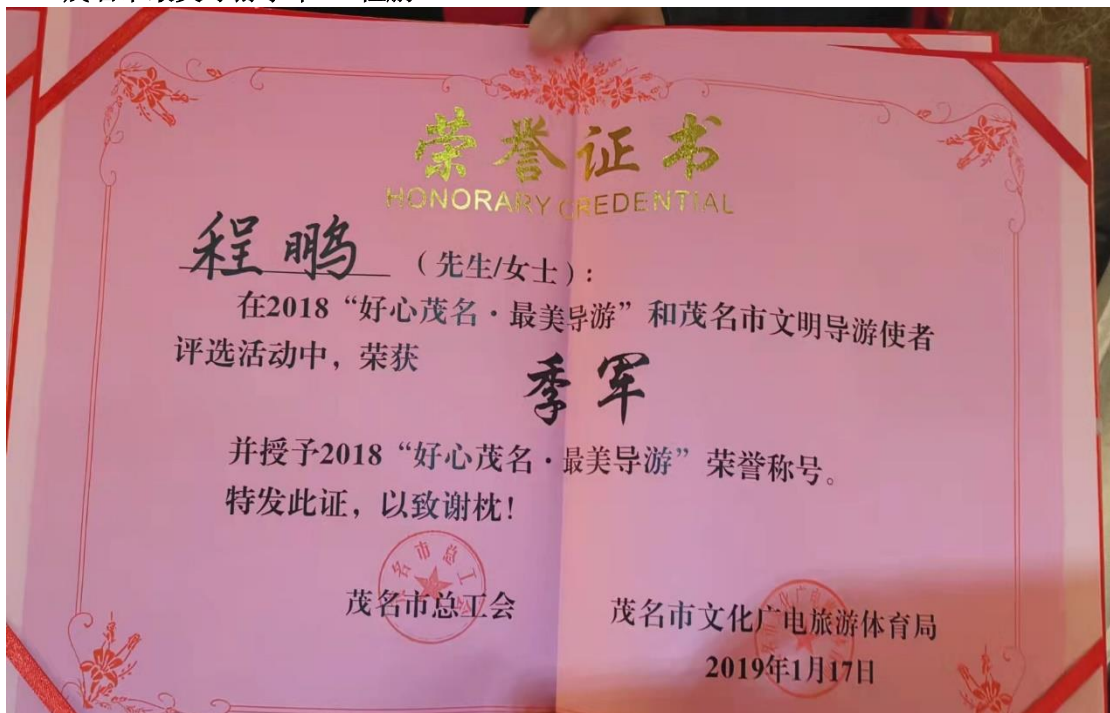 荣誉证书
HONORARY CREDENTIAL
程鹏 （先生/女士）：
在2018“好心茂名·最美导游”和茂名市文明导游使者
评选活动中，荣获
季军
并授予2018“好心茂名·最美导游”荣誉称号。
特发此证，以致谢枕！
茂名市总工会
茂名市文化广电旅游体育局
2019年1月17日